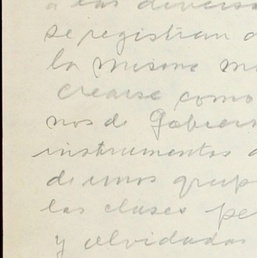 a las divers
se registran
la misma m
crearse como
nos de Gobier
instrumentos
de unos grup
las clases pe
y olvidadas